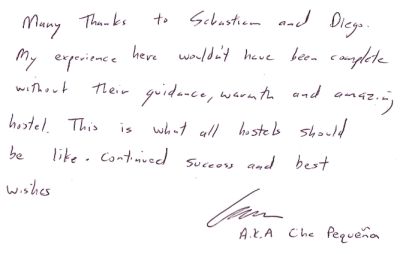 Many Thanks to Sebastian and Diego.
My experience here wouldn't have been complete
without their guidance, warmth and amazing
hostel. This is what all hostels should
be like. Continued success and best
wishes
A.K.A Che Pequeña